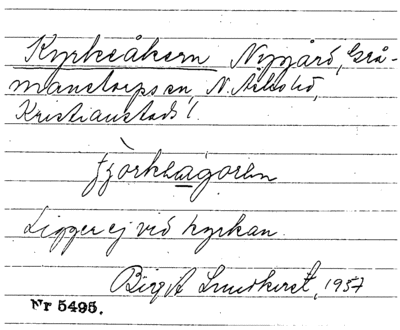 Kyrkeåkern Nygård, Grå-
manstorps sn, N. Åsbo hd,
Kristianstads l.
Ligger ej vid kyrkan.
Birgit Lundkvist, 1957
Nr 5495.